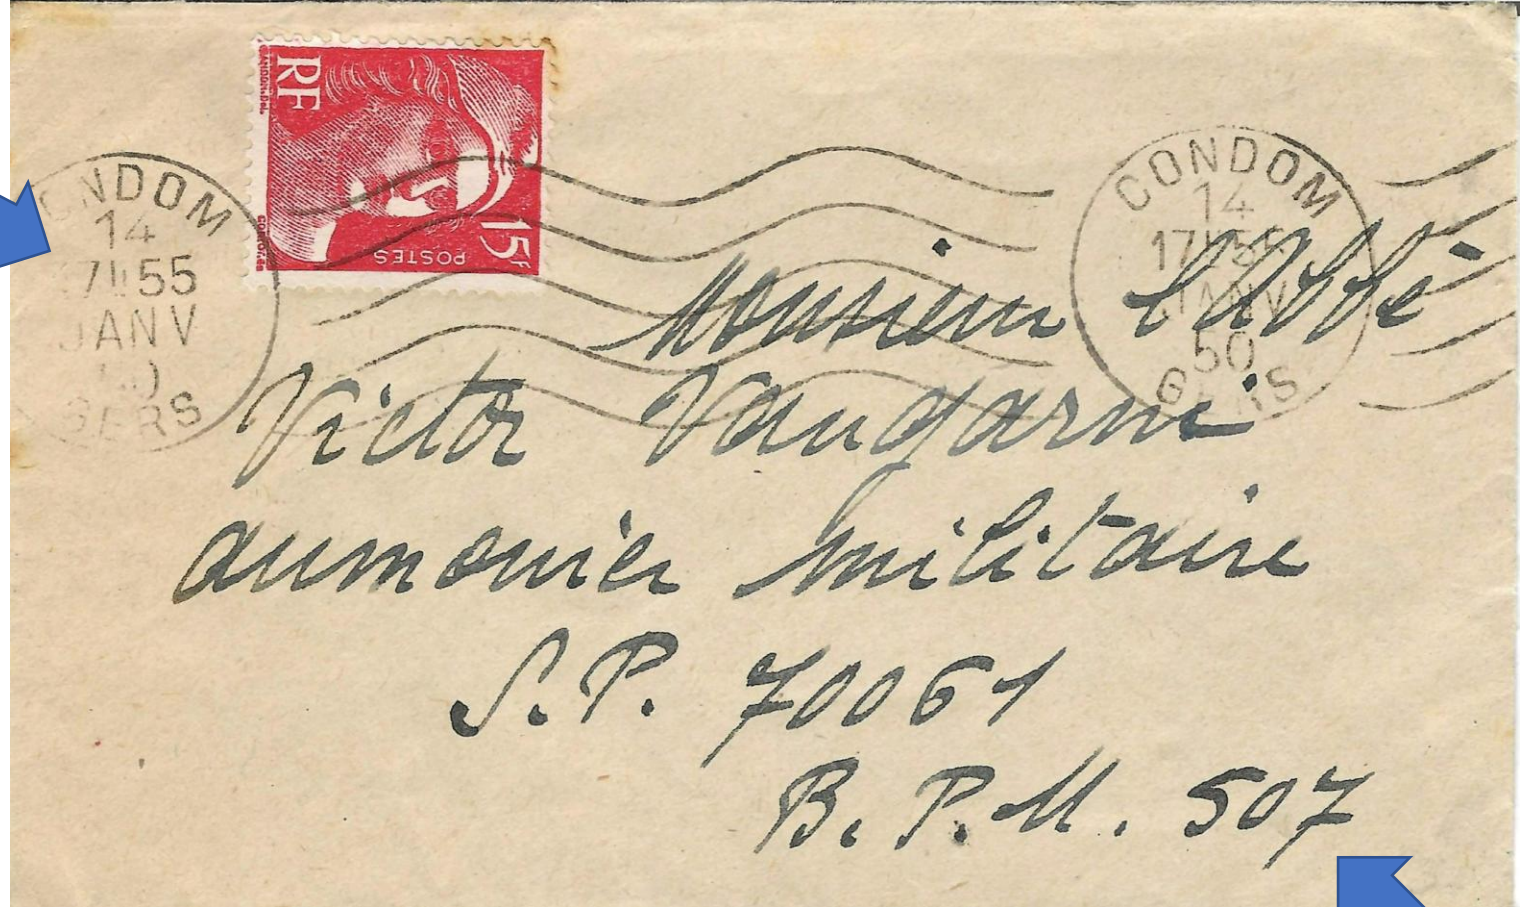 RF
15F
POSTES
CONDOM
14
17H55
JANV
50
GERS
CONDOM
14
17H55
JANV
50
GERS
Monsieur l'Abbé
Victor Vaugarni
aumonier militaire
S.P. 70061
B.P.M. 507